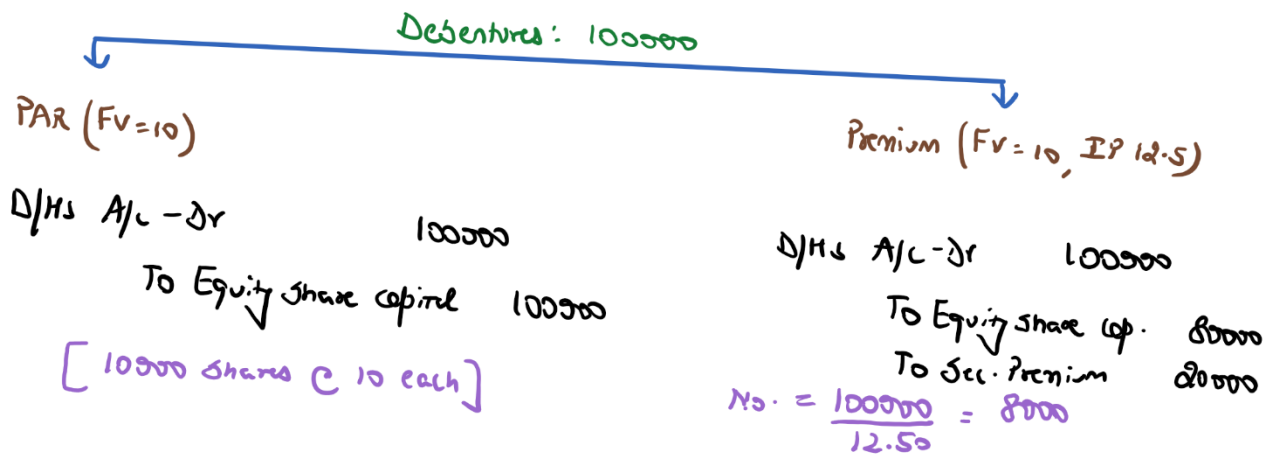 Debentures: 100000
PAR (FV=10)
D/Hs A/c - Dr 100000
To Equity share capital 100000
[10000 shares @ 10 each]
Premium (FV=10, IP 12.5)
D/Hs A/c - Dr 100000
To Equity share cap. 80000
To Sec. Premium 20000
No. = 100000 / 12.50 = 8000